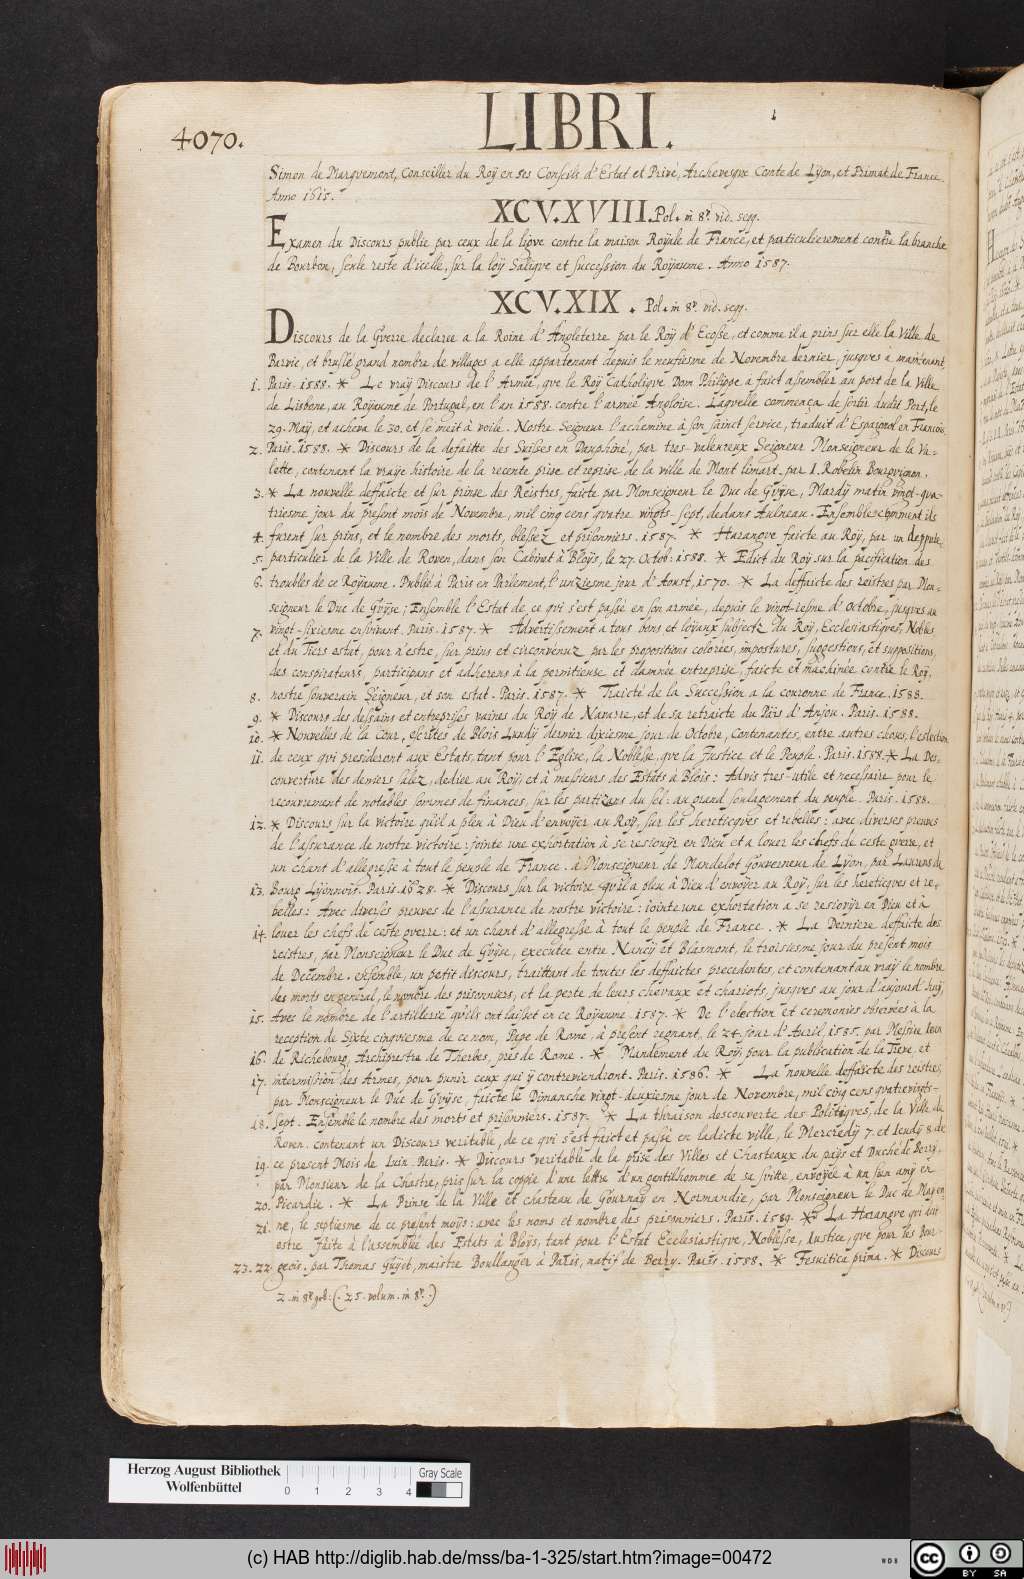 LIBRI.
4070.
Simon de Marquemont, Conseiller du Roÿ en ses Conseils d'Estat et Privé, Archevesque Conte de Lÿon, et Primat de France.
Anno 1615.
XCV.XVIII. Pol. in 8º. vid. seqq.
Examen du Discours publie par ceux de la ligve contre la maison Roÿale de France, et particulierement contre la branche
de Bourbon, seule reste d'icelle, sur la loÿ Saliqve et succession du Roÿaume. Anno 1587.
XCV.XIX. Pol. in 8º. vid. seqq.
Discours de la Gverre declaree a la Roine d'Angleterre par le Roÿ d'Ecosse, et comme il a prins sur elle la Ville de
Barvic, et bruslé grand nombre de villages a elle appartenant depuis le neufiesme de Novembre dernier, jusqves à maintenant.
1. Paris. 1588. * Le vraÿ Discours de l'Armée, qve le Roÿ Catholiqve Dom Philippe a faict assembler au port de la Ville
de Lisbone, au Roÿaume de Portugal, en l'an 1588. contre l'armée Angloise. Laqvelle commença de sortir dudit Port, le
29. Maÿ, et acheva le 30. et se meit à voile. Nostre Seigneur l'achemine à son sainct service, traduit d'Espagnol en Francois
2. Paris. 1588. * Discours de la defaitte des Suisses en Dauphiné, par tres-valeureux Seigneur Monseigneur de la Va-
lette, contenant la vraÿe histoire de la recente prise et reprise de la ville de Mont limart. par I. Robelin Bourgvignon.
3. * La nouvelle deffaicte et sur prinse des Reistres, faicte par Monseigneur le Duc de Gvÿse, Mardÿ matin vingt-qva-
triesme jour du present mois de Novembre, mil cinq cens qvatre vingts-sept, dedans Aulneau. Ensemble comment ils
4. furent sur prins, et le nombre des morts, blessez et prisonniers. 1587. * Harangve faicte au Roÿ, par un depputé
5. particulier de la Ville de Roven, dans son Cabinet à Bloÿs, le 27. Octob: 1588. * Edict du Roÿ sur la pacification des
6. troubles de ce Roÿaume. Publié à Paris en Parlement, l'unziesme jour d'Aoust, 1570. * La deffaicte des reistres par Mon-
seigneur le Duc de Gvÿse; Ensemble l'Estat de ce qvi s'est passé en son armée, depuis le vingt-iesme d'Octobre, jusqves au
7. vingt-sixiesme ensvivant. Paris. 1587. * Advertissement a tous bons et loÿaux subjectz du Roÿ, Ecclesiastiqves, Nobles
et du Tiers estat, pour n'estre, sur prins et circonvenuz par les propositions colorées, impostures, suggestions, et suppositions,
des conspirateurs, participans et adherens à la pernitieuse et damnée entreprise, faicte et machinée contre le Roÿ,
8. nostre souverain Seigneur, et son estat. Paris. 1587. * Traicté de la Succession a la couronne de France. 1588.
9. * Discours des dessains et entreprises vaines du Roÿ de Navarre, et de sa retraicte du Païs d'Anjou. Paris. 1588.
10. * Nouvelles de la Cour, escrites de Blois Lundÿ dernier dixiesme jour de Octobre, Contenantes, entre autres choses, l'eslection
11. de ceux qvi presideront aux Estats, tant pour l'Eglise, la Noblesse, qve la Justice et le Peuple. Paris. 1588. * La Des-
couverture des deniers salez, dediee au Roÿ, et à messieurs des Estats à Blois: Advis tres-utile et necessaire pour le
recouvrement de notables sommes de finances, sur les partizans du sel: au grand soulagement du peuple. Paris. 1588.
12. * Discours sur la victoire qu'il a pleu à Dieu d'envoÿer au Roÿ, sur les hereticqves et rebelles: avec diverses preuves
de l'assurance de nostre victoire: jointe une exhortation à se resiouÿr en Dieu et a louer les chefs de ceste gverre, et
un chant d'allegresse à tout le peuple de France. à Monseigneur de Mandelot Gouverneur de Lÿon, par Laurens de
13. Bourg Lÿonnois. Paris. 1628. * Discours sur la victoire qu'il a pleu à Dieu d'envoÿer au Roÿ, sur les hereticqves et re-
belles: Avec diverses preuves de l'assurance de nostre victoire: iointe une exhortation a se resiouÿr en Dieu et à
14. louer les chefs de ceste gverre: et un chant d'allegresse à tout le peuple de France. * La Derniere deffaicte des
reistres, par Monseigneur le Duc de Gvÿse, executée entre Nancÿ et Blasmont, le troisiesme jour du present mois
de Decembre. ensemble, un petit discours, traittant de toutes les deffaictes precedentes, et contenant au vraÿ le nombre
des morts en general, le nombre des prisonniers, et la perte de leurs chevaux et chariots, jusqves au jour d'aujourd'huÿ,
15. Avec le nombre de l'artillerie qu'ils ont laissé en ce Roÿaume. 1587. * De l'election et ceremonies observées à la
reception de Sixte cinqviesme de ce nom, Pape de Rome, à present regnant, le 24. jour d'Avril. 1585. par Messire Iean
16. de Richebourg, Archiprestre de Therbes, près de Rome. * Mandement du Roÿ, pour la publication de la Treve, et
17. intermission des Armes, pour punir ceux qui ÿ contreviendront. Paris. 1586. * La nouvelle deffaicte des reistres,
par Monseigneur le Duc de Gvÿse, faicte le Dimanche vingt-deuxiesme jour de Novembre, mil cinq cens qvatrevingts-
18. sept. Ensemble le nombre des morts et prisonniers. 1587. * La thraison descouverte des Politiqves, de la Ville de
Roven. contenant un Discours veritable, de ce qvi s'est faict et passé en ladicte ville, le Mercredÿ 7. et Ieudÿ 8. de
19. ce present Mois de Iuin. Paris. * Discours veritable de la prise des Villes et Chasteaux du païs et Duché de Berrÿ,
par Monsieur de la Chastre, pris sur la coppie d'une lettre d'un gentilhomme de sa svitte, envoÿée à un sien amÿ en
20. Picardie. * La Prinse de la Ville et chasteau de Gournaÿ en Normandie, par Monseigneur le Duc de Maÿen
21. ne, le septiesme de ce present moÿs: avec les noms et nombre des prisonniers. Paris. 1589. * La Harangve qvi doit
estre faite à l'assemblee des Estats à Bloÿs, tant pour l'Estat Ecclesiastiqve, Noblesse, Iustice, qve pour les Bour-
23. 22. geois. par Thomas Gvÿet, maistre Boullanger à Paris, natif de Berrÿ. Paris. 1588. * Jesuitica prima. * Discours
2. in 8º geb: (. 25. volum. in 8º.)
Herzog August Bibliothek
Wolfenbüttel
0 1 2 3 4
Gray Scale
(c) HAB http://diglib.hab.de/mss/ba-1-325/start.htm?image=00472
WDB
cc BY SA